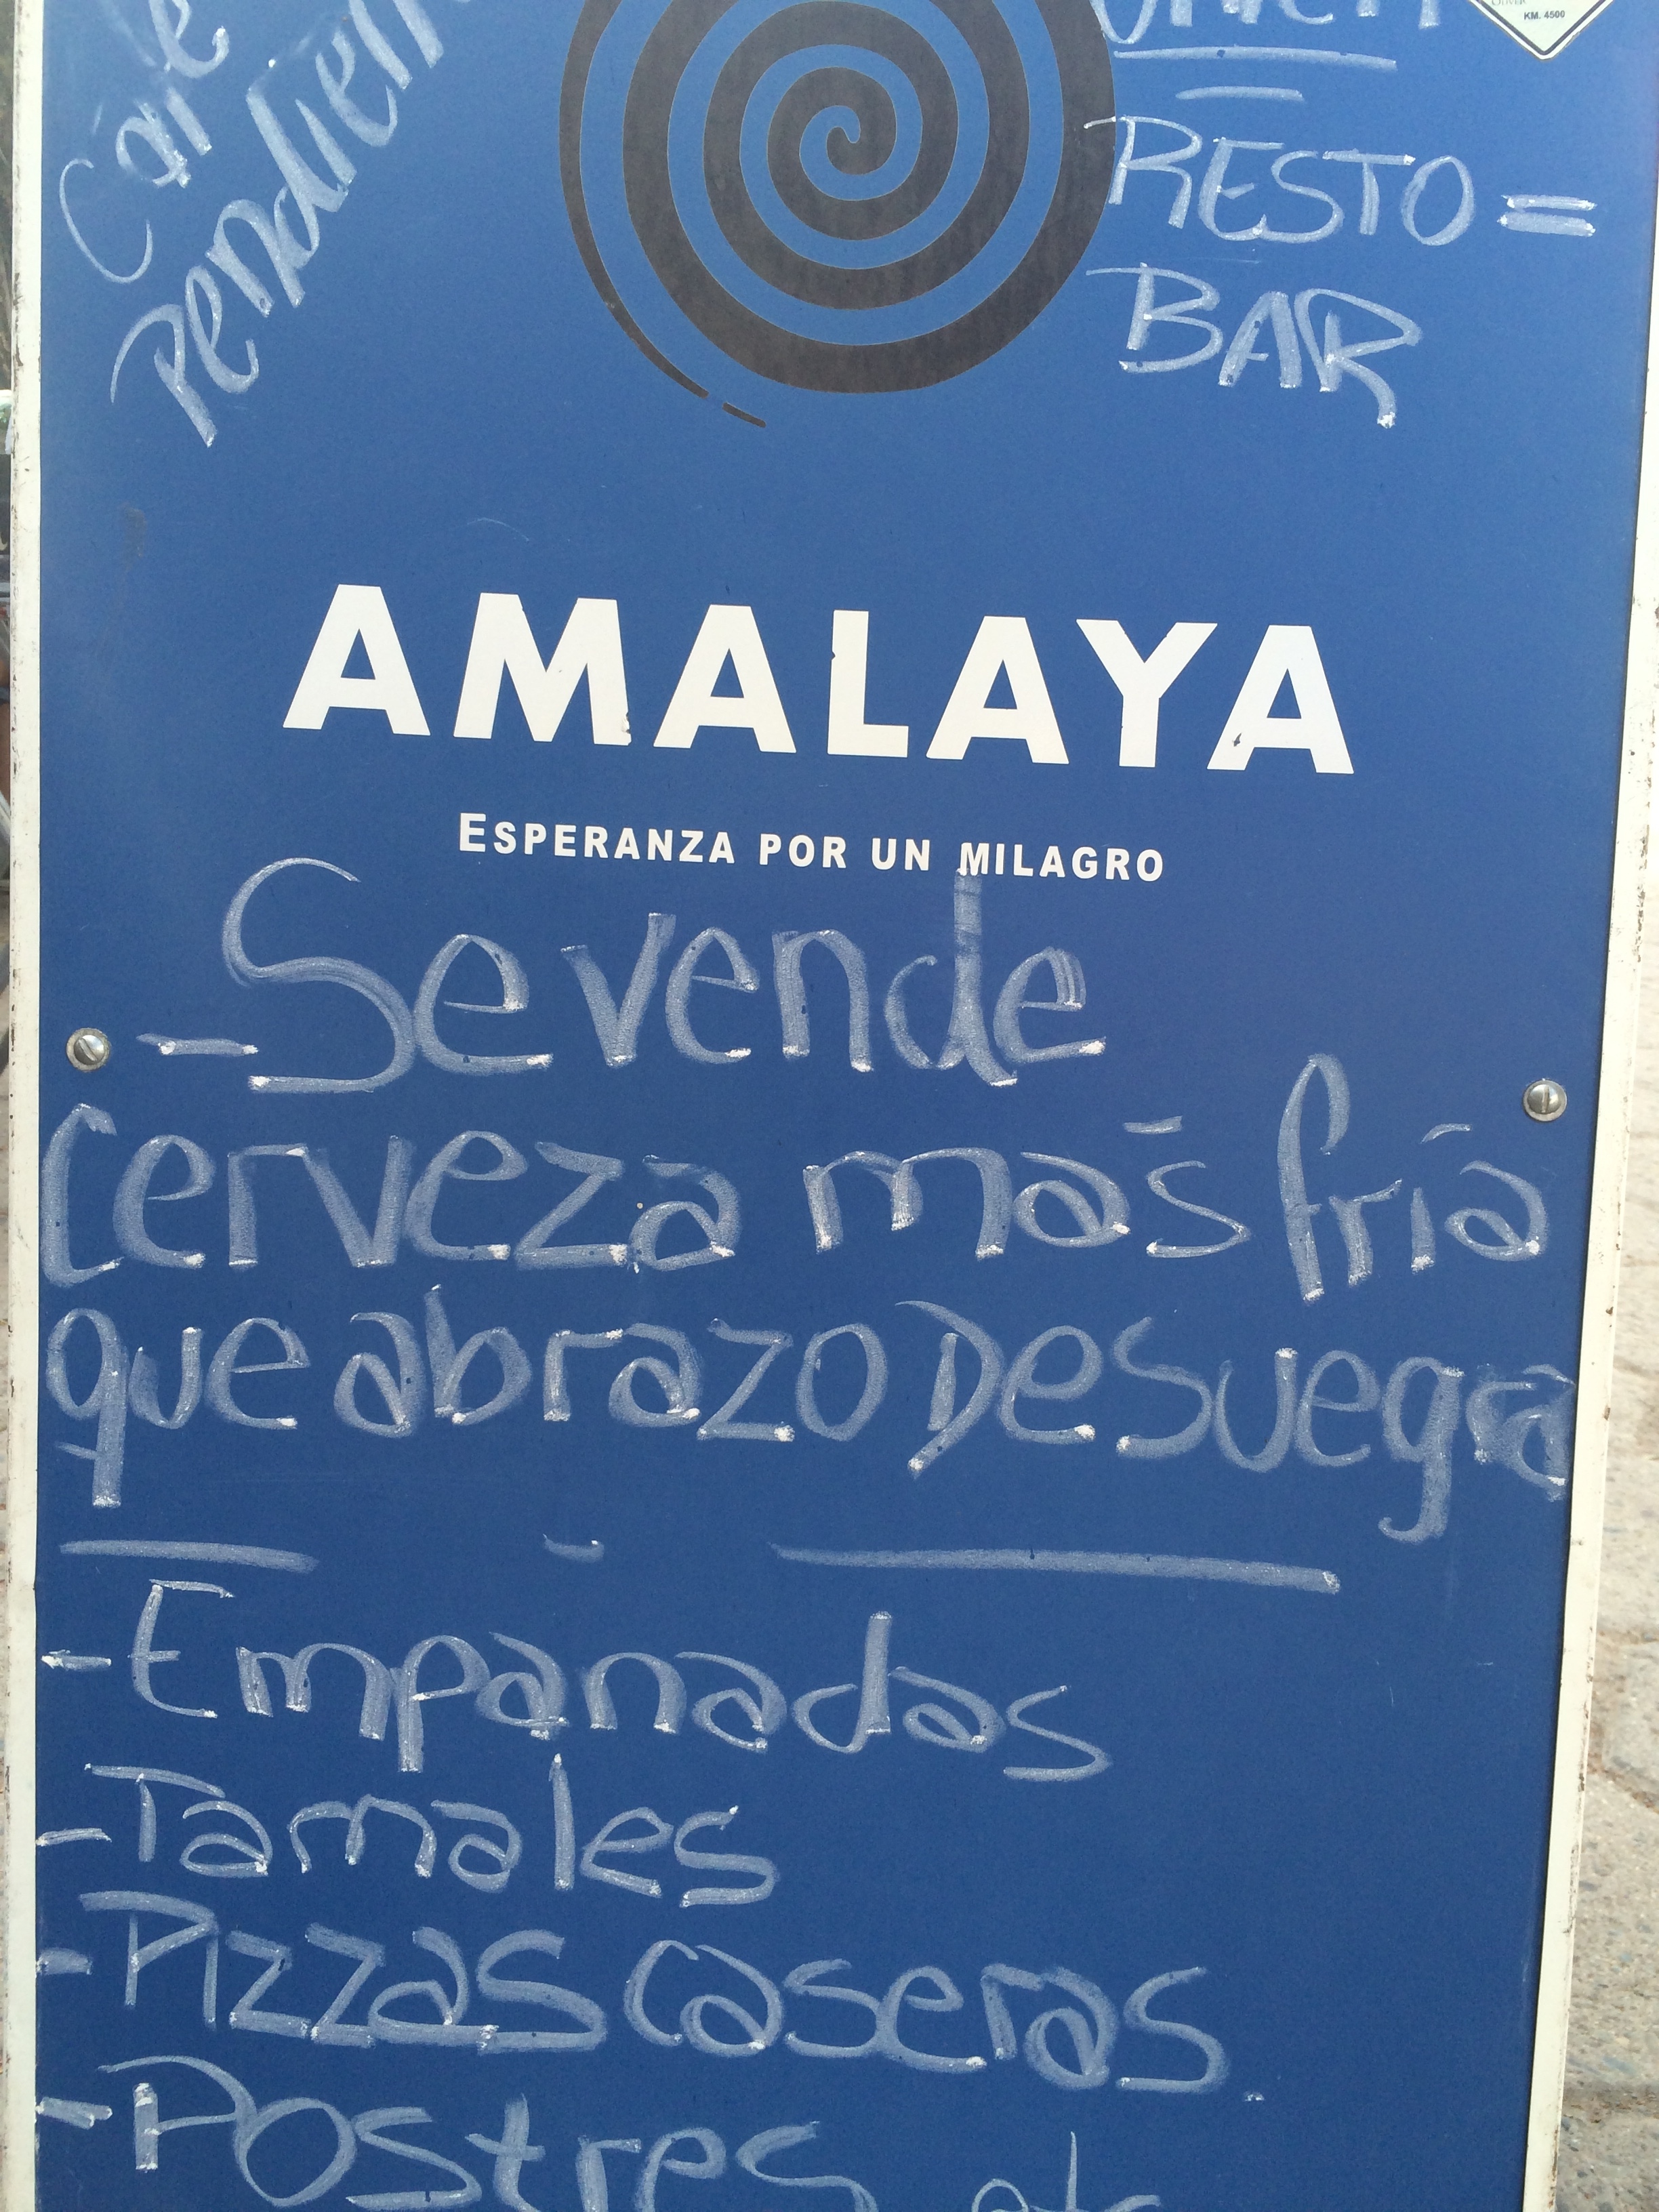 Café
RESTO =
BAR
KM. 4500
AMALAYA
ESPERANZA POR UN MILAGRO
- Se vende
Cerveza más fría
que abrazo De suegra
- Empanadas
- Tamales
- Pizzas caseras.
- Postres etc